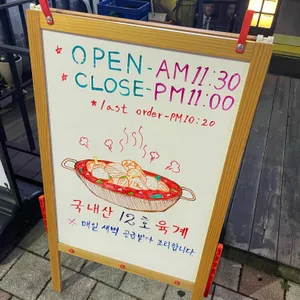 * OPEN-AM11:30
* CLOSE-PM11:00
* last order-PM10:20
국내산 12호 육계
※ 매일 새벽 공급받아 조리합니다